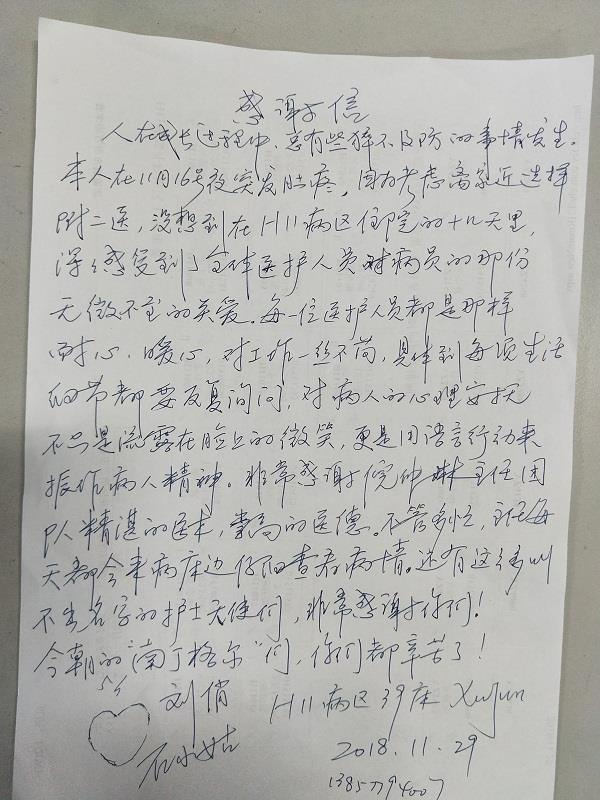 感谢信
人在成长过程中，总有些猝不及防的事情发生。
本人在11月16号夜突发肚疼，因为考虑离家近选择
附二医，没想到在H11病区住院的十几天里，
深深感受到了全体医护人员对病员的那份
无微不至的关爱。每一位医护人员都是那样
耐心、暖心，对工作一丝不苟，具体到每项生活
细节都要反复询问，对病人的心理安抚
不只是流露在脸上的微笑，更是用语言行动来
振作病人精神。非常感谢倪仲琳主任团
队精湛的医术，崇高的医德。不管多忙，主任每
天都会来病床边仔细查看病情。还有这么多叫
不出名字的护士天使们，非常感谢你们！
今朝的"南丁格尔"们，你们都辛苦了！
刘俏
H11病区39床
2018.11.29